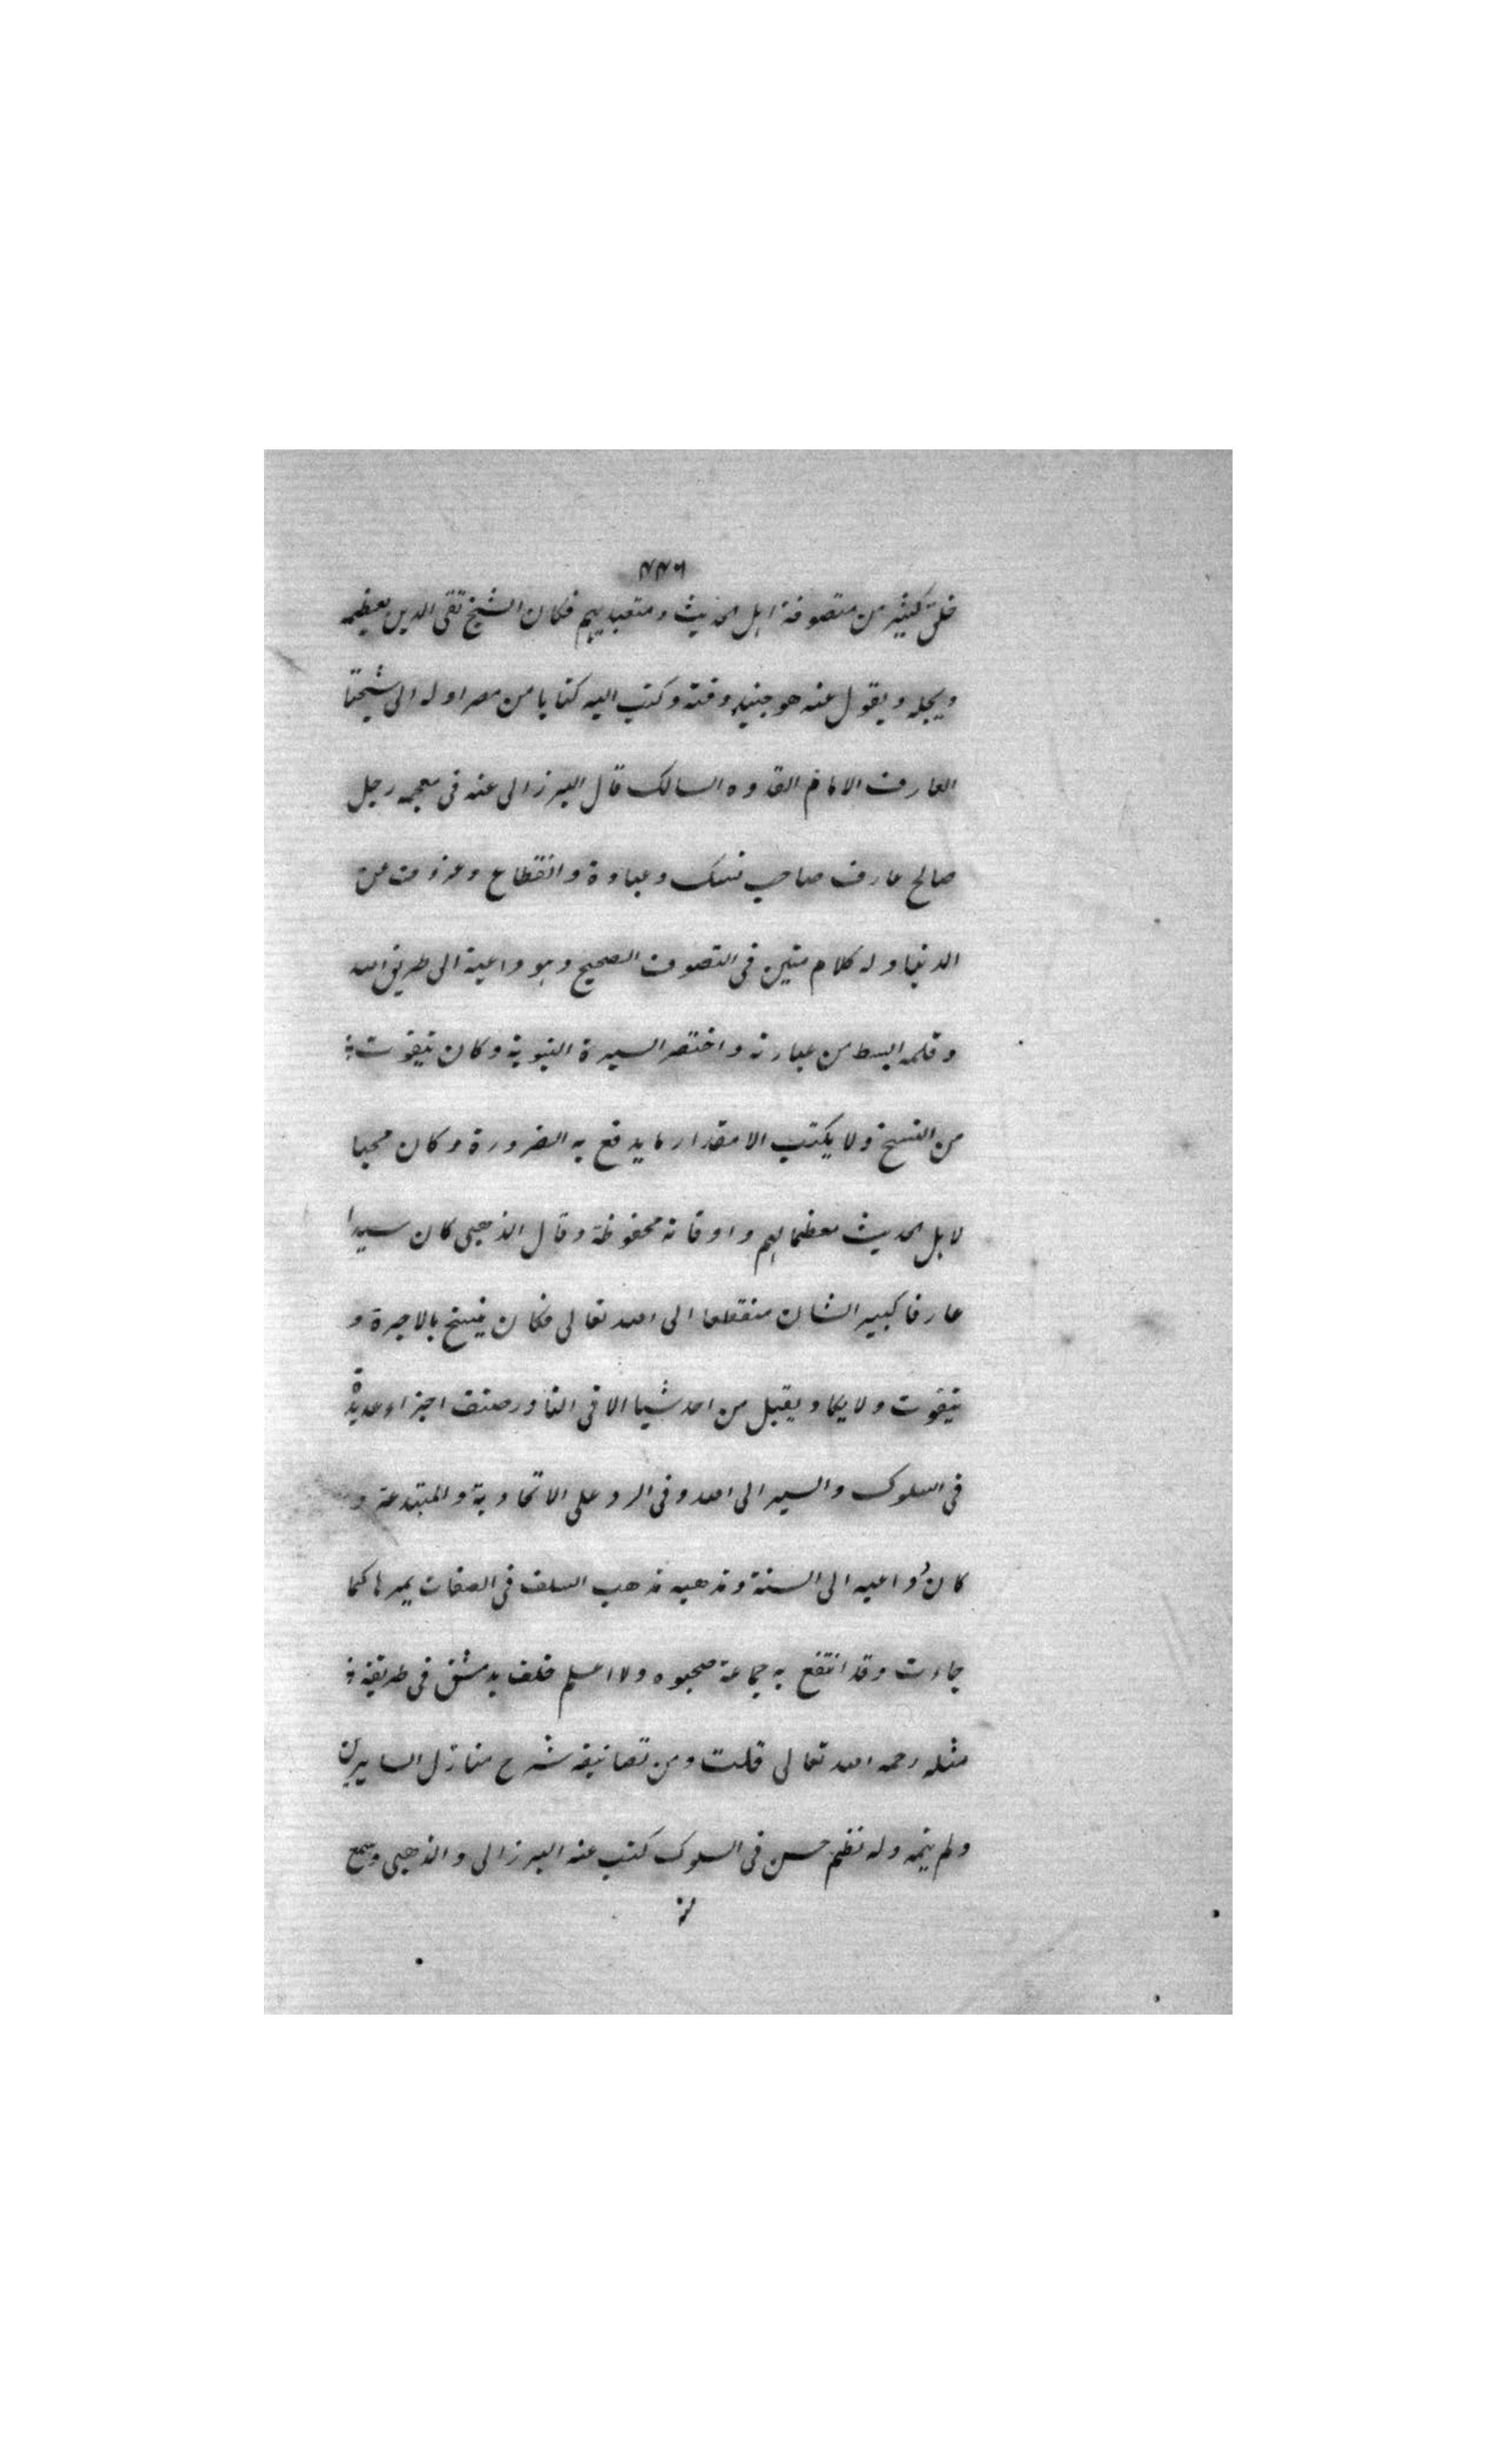 خلق كثير من متصوفة اهل الحديث ومتعبديهم فكان الشيخ تقى الدين يعظمه
ويجله ويقول عنه هو جنيد وقته وكتب اليه كتابا من مصر اوله الى شيخنا
العارف الامام القدوه السالك قال البرزالى عنه فى معجمه رجل
صالح عارف صاحب نسك وعبادة وانقطاع وعزوف عن
الدنيا وله كلام متين فى التصوف الصحيح وهو داعية الى طريق الله
وقلمه ابسط من عبارته واختصر السيرة النبوية وكان يتقوت
من النسخ ولا يكتب الا مقدار ما يدفع به الضرورة وكان محبا
لاهل الحديث معظما لهم واوقاته محفوظة وقال الذهبى كان سيدا
عارفا كبير الشان منقطعا الى الله تعالى فكان ينسخ بالاجرة و
يتقوت ولا يكاد يقبل من احد شيا الا فى النادر صنف اجزاء عديدة
فى السلوك والسير الى الله وفى الرد على الاتحادية والمبتدعة و
كان داعيه الى السنة ومذهبه مذهب السلف فى الصفات يمرها كما
جاءت وقد انتفع به جماعة صحبوه ولا اعلم خلف بدمشق فى طريقته
مثله رحمه الله تعالى قلت ومن تصانيفه شرح منازل السايرين
ولم يتمه وله نظم حسن فى السلوك كتب عنه البرزالى والذهبى وسمع